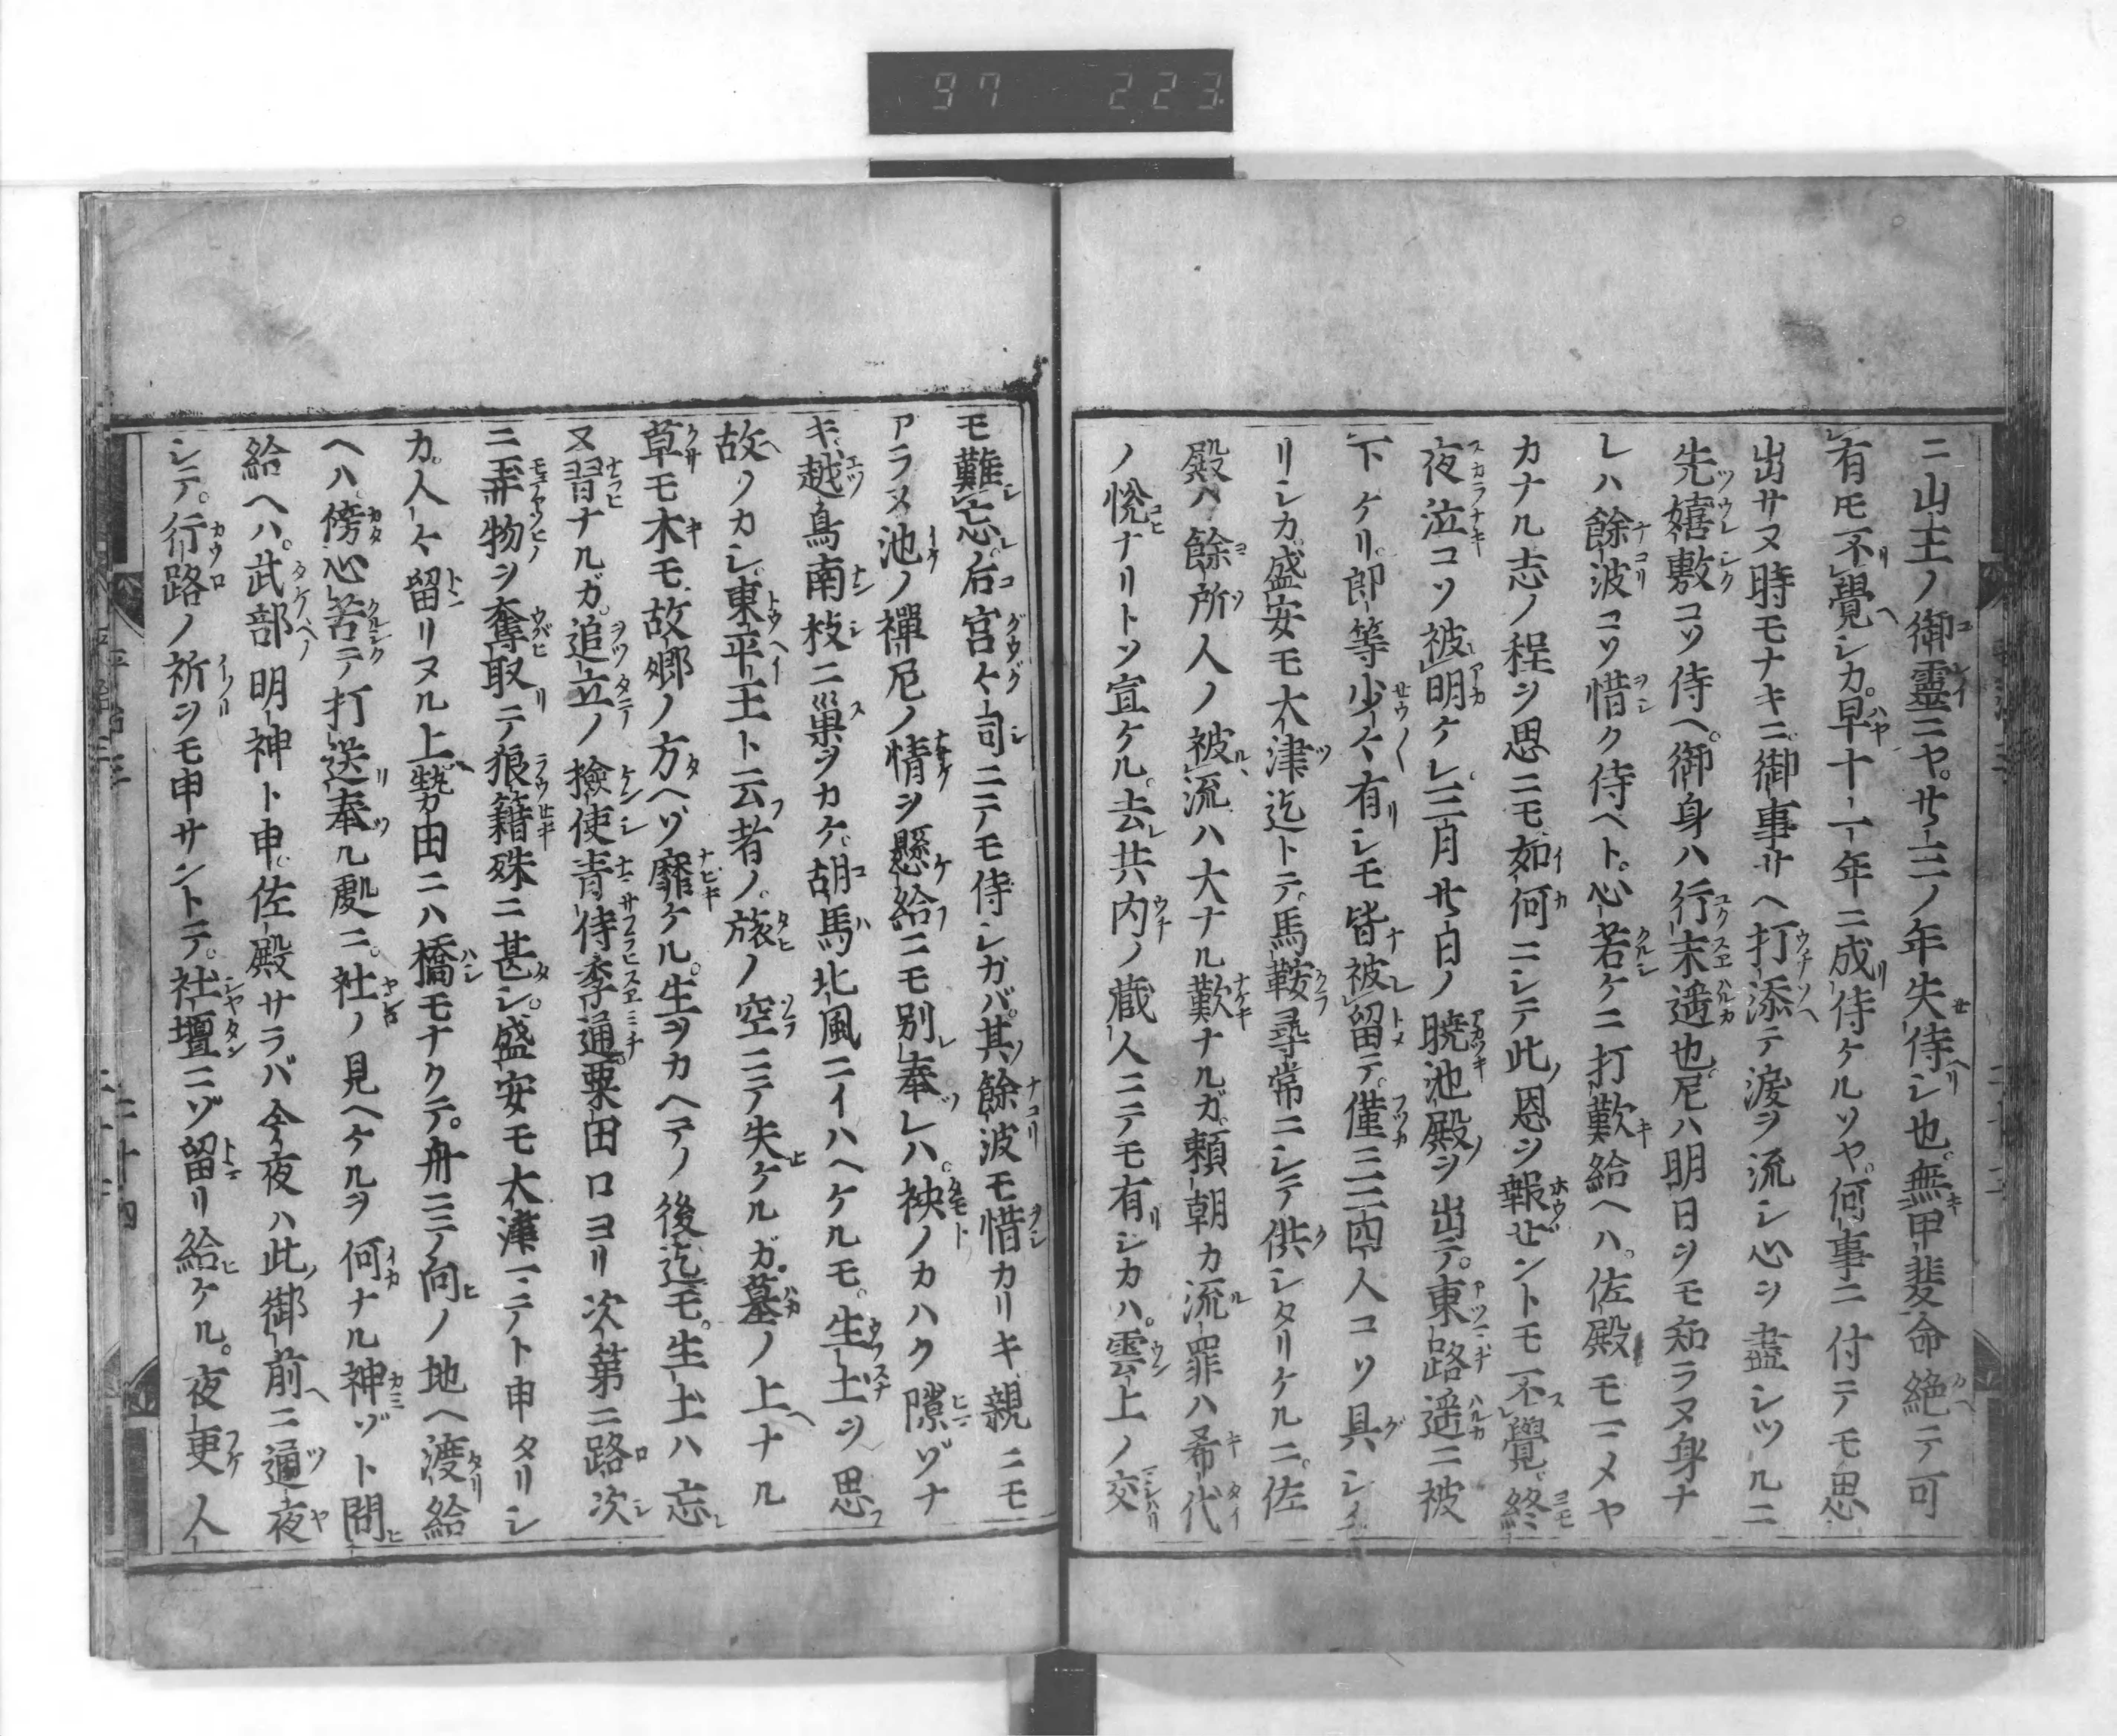 97 223
ニ山王ノ御霊ニヤ。廿三ノ年失侍シ也。無甲斐命絶テ可
有モ不覺シカ。早十一年ニ成侍ケルソヤ。何事ニ付テモ思
出サヌ時モナキニ。御事サヘ打添テ涙ヲ流シ心ヲ盡シツルニ
先嬉敷コソ侍ヘ。御身ハ行末遥也。尼ハ明日ヲモ知ラヌ身ナ
レハ餘波コソ惜ク侍ヘト。心苦ケニ打歎給ヘハ。佐殿モ一メヤ
カナル志ノ程ヲ思ニモ。如何ニシテ此恩ヲ報セントモ不覺。終
夜泣コソ被明ケレ。三月廿日ノ曉池殿ヲ出テ。東路遥ニ被
下ケリ。郎等少々有シモ皆被留テ。僅三四人コソ具シ
リシカ。盛安モ大津迄トテ。馬鞍尋常ニシテ供シタリケルニ。佐
殿ハ餘所人ノ被流ハ大ナル歎ナルガ。頼朝カ流罪ハ希代
ノ悦ナリトソ宣ケル。去共内ノ蔵人ニテモ有シカハ。雲上ノ交
モ難忘。后宮々司ニテモ侍シガバ。其餘波モ惜カリキ。親ニモ
アラヌ池ノ禪尼ノ情ヲ懸給ニモ別奉レハ。袂ノカハク隙ゾナ
キ。越鳥南枝ニ巣ヲカケ。胡馬北風ニイハヘケルモ。生土ヲ思
故ノカシ。東平王ト云者ノ。旅ノ空ニテ失ケルガ。墓ノ上ナル
草モ木モ。故郷ノ方ヘゾ靡ケル。生ヲカヘテノ後迄モ。生土ハ忘
ヌ習ナルガ。追立ノ撿使青侍季通。粟田口ヨリ次第ニ路次
ニ弄物ヲ奪取テ狼籍殊ニ甚シ。盛安モ大津ニテト申タリシ
カ。人々留リヌル上。勢田ニハ橋モナクテ。舟ニテ向ノ地ヘ渡給
ヘハ。傍心苦テ打送奉ル處ニ。社ノ見ヘケルヲ何ナル神ゾト問
給ヘハ。武部明神ト申。佐殿サラバ今夜ハ此御前ニ通夜
シテ。行路ノ祈ヲモ申サントテ。社壇ニゾ留リ給ケル。夜更人